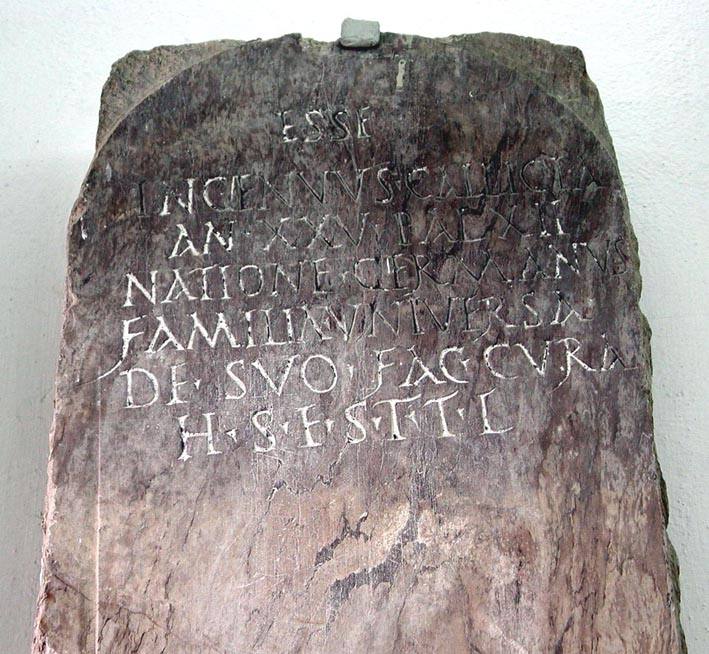 ESSE
INGENVVS·GALLICIA
AN·XXV·PAL XII
NATIONE·GERMANVS
FAMILIA VNIVERSA
DE·SVO·FAC·CVRA
H·S·E·S·T·T·L